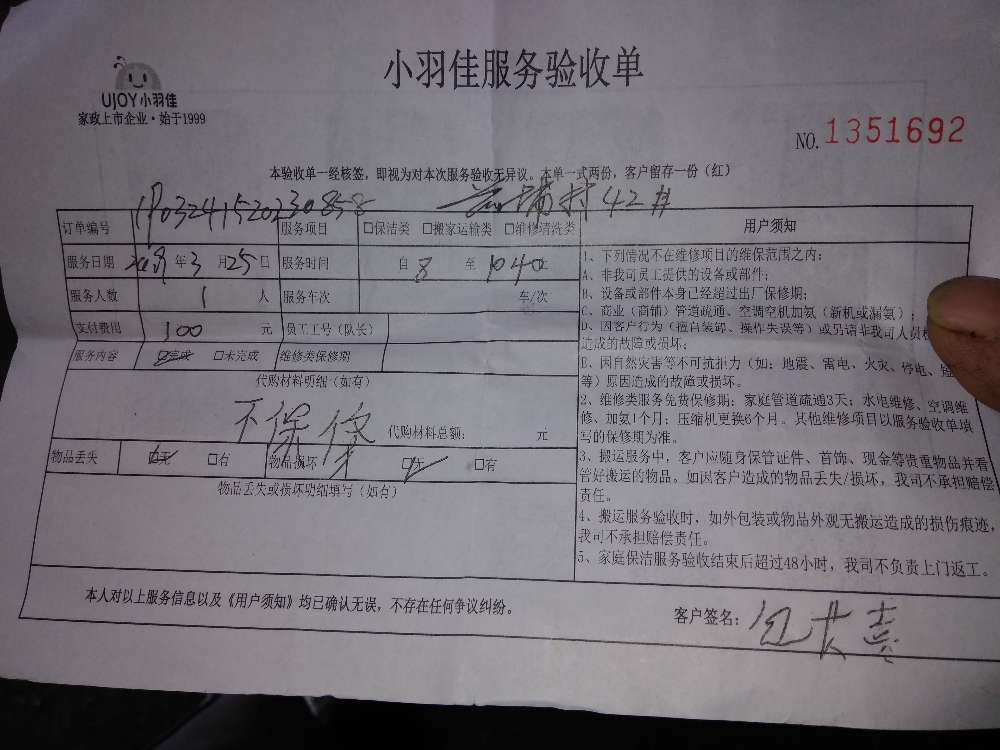 小羽佳服务验收单
UJOY小羽佳
家政上市企业·始于1999
NO. 1351692
本验收单一经核签，即视为对本次服务验收无异议。本单一式两份，客户留存一份（红）
42#
订单编号
服务项目 □保洁类 □搬家运输类 □维修清洗类
用户须知
服务日期 年3月25日 服务时间 自8至1040
服务人数 1 人 服务车次 车/次
支付费用 100 元 员工工号（队长）
服务内容 ☑完成 □未完成 维修类保修期
代购材料明细（如有）
不保修
代购材料总额： 元
物品丢失 ☑无 □有 物品损坏 ☑无 □有
物品丢失或损坏明细填写（如有）
1、下列情况不在维修项目的维保范围之内：
A、非我司员工提供的设备或部件；
B、设备或部件本身已经超过出厂保修期；
C、商业（商铺）管道疏通、空调空机加氨（新机或漏氨）；
D、因客户行为（擅自装卸、操作失误等）或另请非我司人员
造成的故障或损坏；
E、因自然灾害等不可抗拒力（如：地震、雷电、火灾、停电、
等）原因造成的故障或损坏。
2、维修类服务免费保修期：家庭管道疏通3天；水电维修、空调维
修、加氨1个月；压缩机更换6个月。其他维修项目以服务验收单填
写的保修期为准。
3、搬运服务中，客户应随身保管证件、首饰、现金等贵重物品并看
管好搬运的物品。如因客户造成的物品丢失/损坏，我司不承担赔偿
责任。
4、搬运服务验收时，如外包装或物品外观无搬运造成的损伤痕迹，
我司不承担赔偿责任。
5、家庭保洁服务验收结束后超过48小时，我司不负责上门返工。
本人对以上服务信息以及《用户须知》均已确认无误，不存在任何争议纠纷。
客户签名：